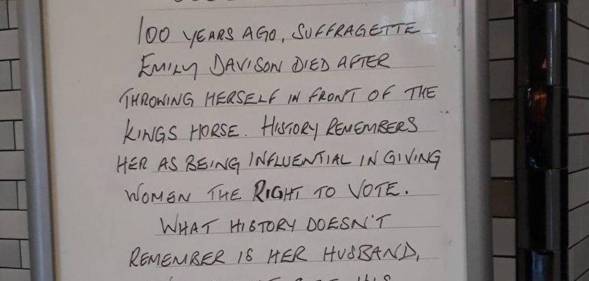 100 YEARS AGO, SUFFRAGETTE
EMILY DAVISON DIED AFTER
THROWING HERSELF IN FRONT OF THE
KINGS HORSE. HISTORY REMEMBERS
HER AS BEING INFLUENTIAL IN GIVING
WOMEN THE RIGHT TO VOTE.
WHAT HISTORY DOESN'T
REMEMBER IS HER HUSBAND,